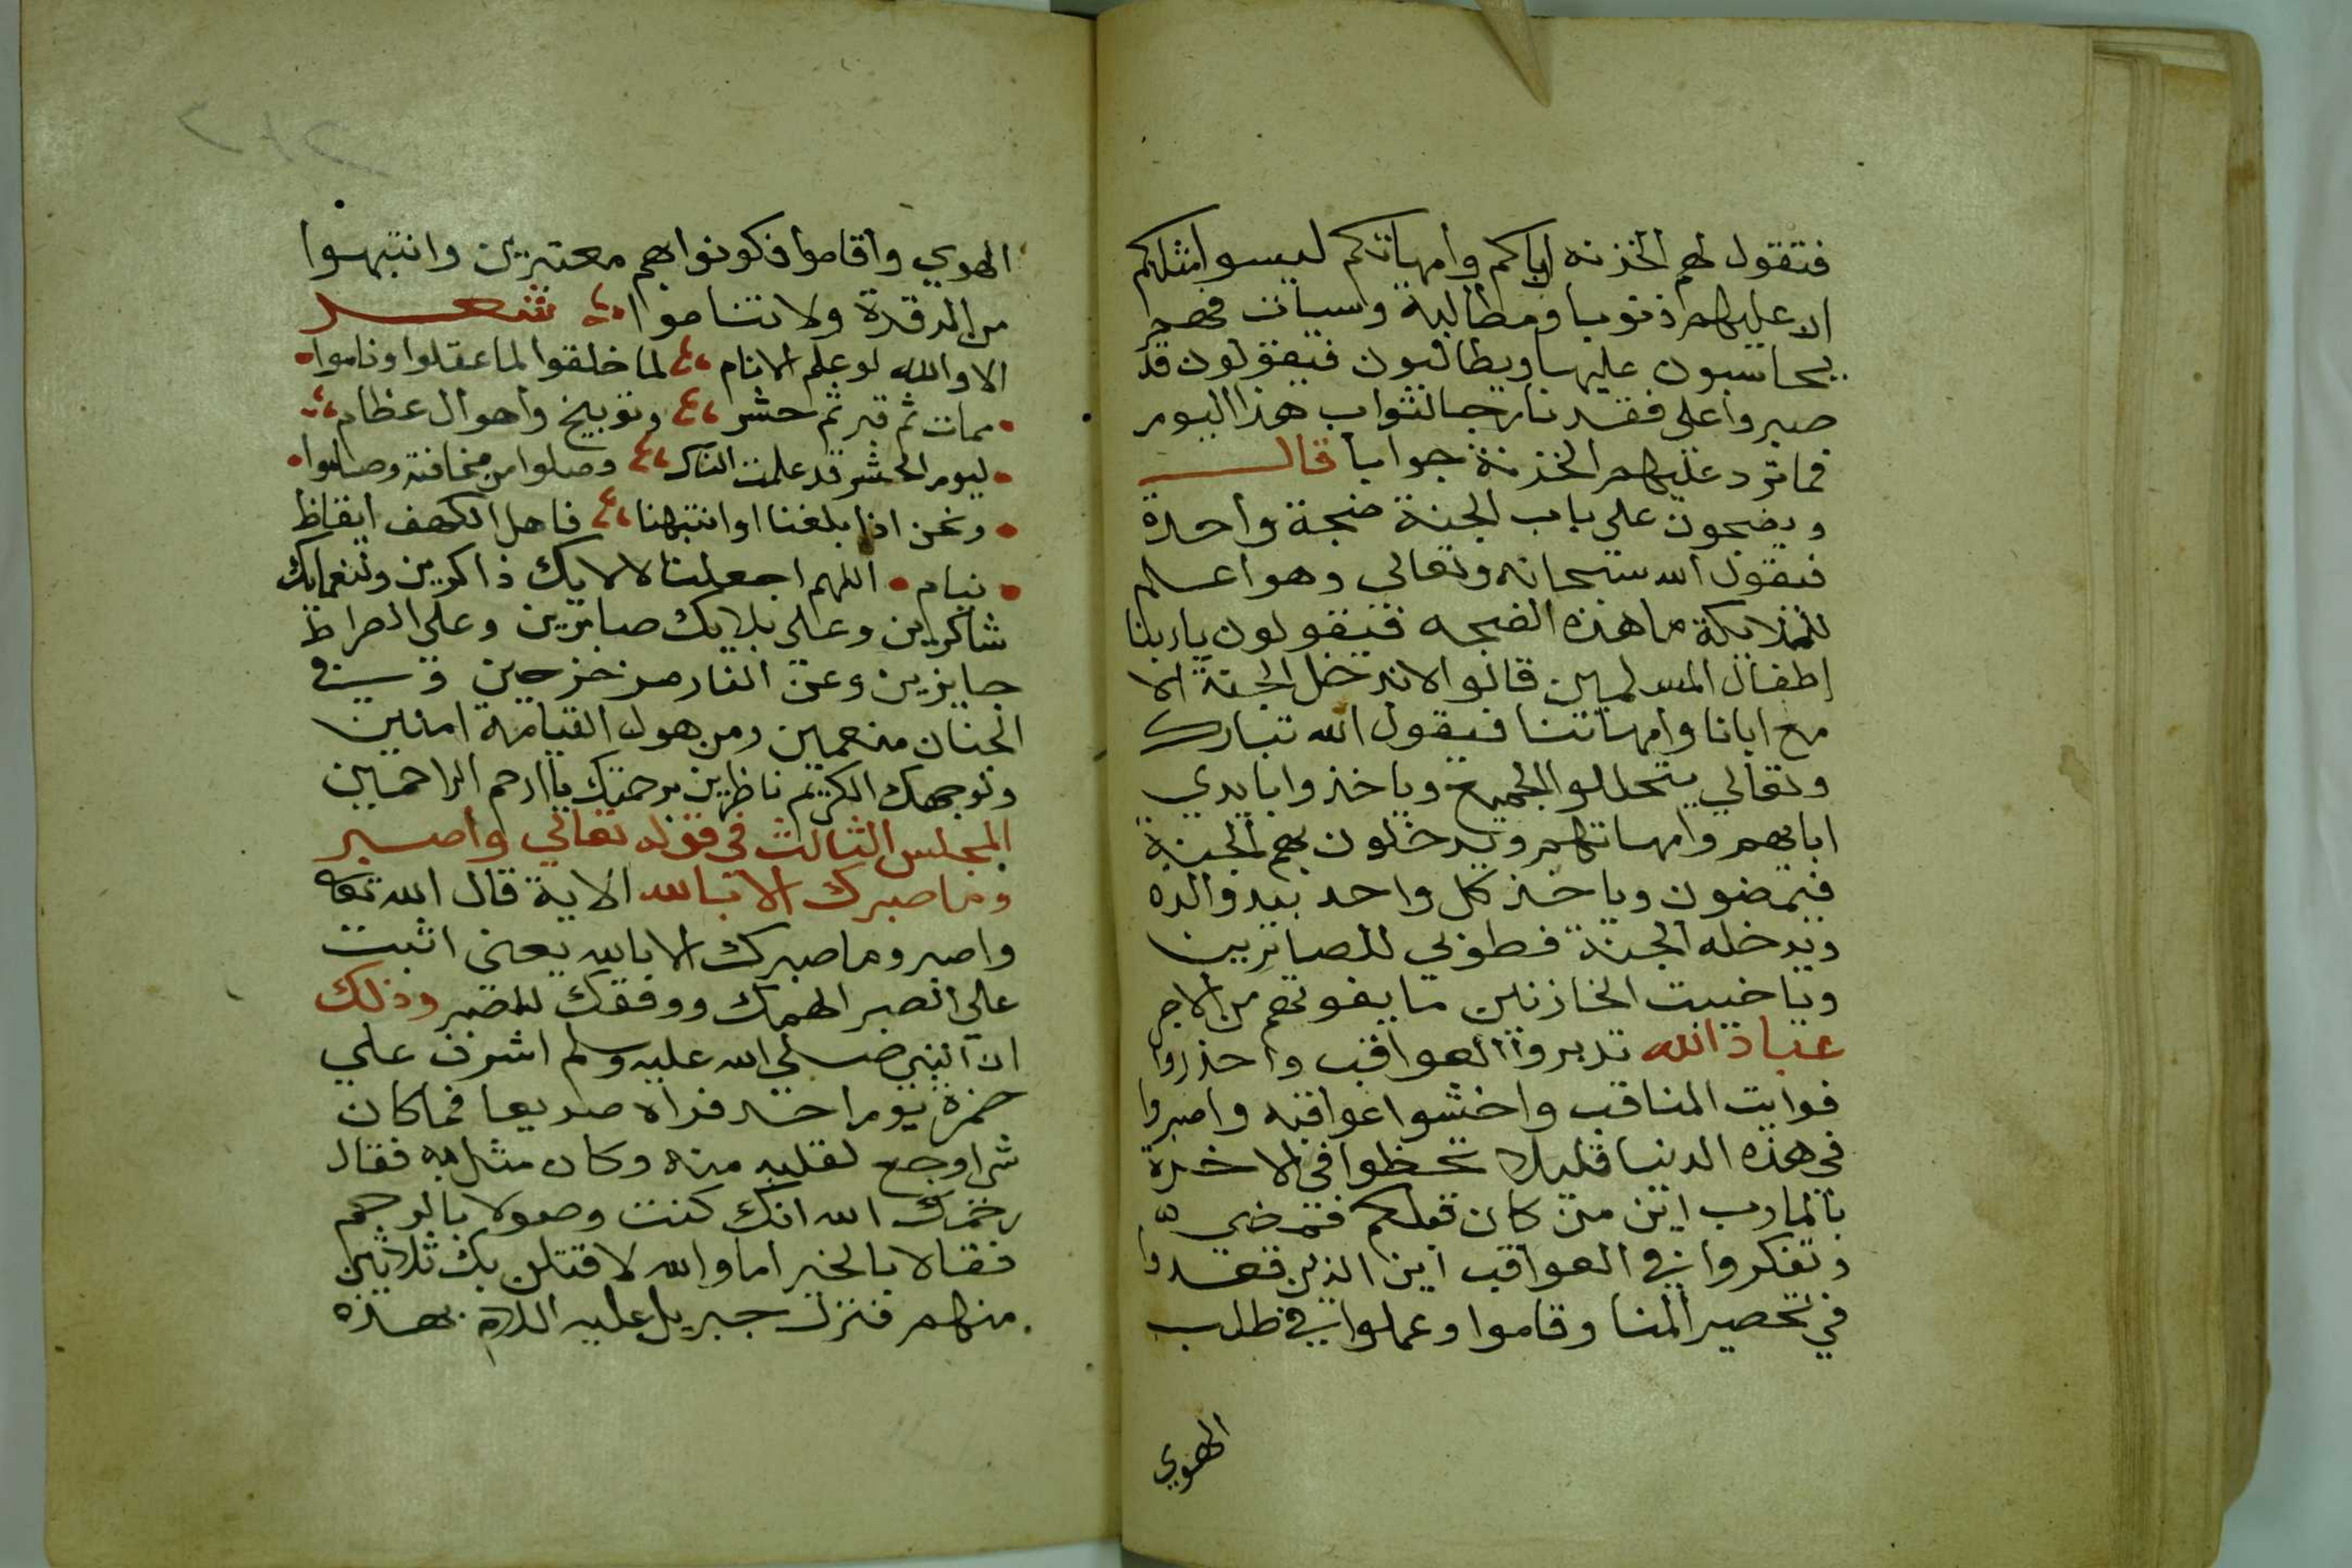 فتقول لهم الخزنه اباكم وامهاتكم ليسوا مثلكم
الا عليهم ذنوبا ومطالبة وسيات فهم
يحاسبون عليها ويطالبون فيقولون قد
صبروا على فقدنا رجا لثواب هذا اليوم
فما ترد عليهم الخزنة جوابا قال
ويضجون على باب الجنة ضجة واحدة
فيقول الله سبحانه وتعالى وهو اعلم
للملايكة ما هذه الضجه فيقولون يا ربنا
اطفال المسلمين قالوا لا ندخل الجنة الا
مع ابانا وامهاتنا فيقول الله تبارك
وتعالي يتحللوا الجميع وياخذوا بايدي
ابايهم وامهاتهم ويدخلون بهم الجنة
فيمضون وياخذ كل واحد بيد والده
ويدخله الجنة فطوبي للصابرين
ويا خيبت الجازعين ما يفوتهم من الاجر
عباد الله تدبروا العواقب واحذروا
فوايت المناقب واخشوا عواقبه واصبروا
في هذه الدنيا قليلا تحظوا في الاخرة
بالمارب اين من كان قبلكم فمضى
وتفكروا في العواقب اين الذين قعدوا
في تحصير المنا وقاموا وعملوا في طلب
الهوي
الهوي واقاموا فكونوا بهم معتبرين وانتبهوا
من الرقدة ولا تناموا شعر
الا والله لو علم الانام لما خلقوا لما غفلوا وناموا
ممات ثم قبر ثم حشر وتوبيخ واهوال عظام
ليوم الحشر قد علمت الناس وصلوا من مخافته وصاموا
ونحن اذا بلغنا او انتبهنا فاهل الكهف ايقاظ
نيام اللهم اجعلنا لالايك ذاكرين ولنعمايك
شاكرين وعلى بلايك صابرين وعلي الصراط
جايزين وعن النار مزحزحين وفي
الجنان منعمين ومن هول القيامة امنين
ولوجهك الكريم ناظرين برحمتك يا ارحم الراحمين
المجلس الثالث في قوله تعالي واصبر
وما صبرك الا بالله الاية قال الله تعا
واصبر وما صبرك الا بالله يعنى اثبت
علي الصبر الهمك ووفقك للصبر وذلك
ان النبي صلي الله عليه وسلم اشرف علي
حمزة يوم احد فراه صريعا فما كان
شيا اوجع لقلبه منه وكان مثل به فقال
رحمك الله انك كنت وصولا بالرحم
فقالا بالخير اما والله لاقتلن بك ثلاثين
منهم فنزل جبريل عليه السلام بهذه